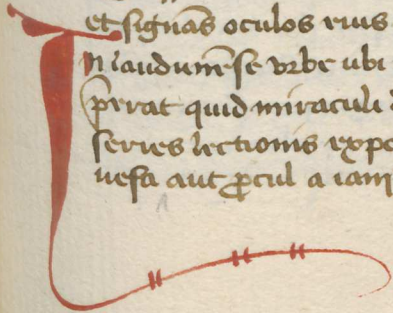 et signās oculos eius
In laudunēse vrbe ubi
ꝑerat quid miraculi
series lectionis expo
uesa aut ꝓcul a iam